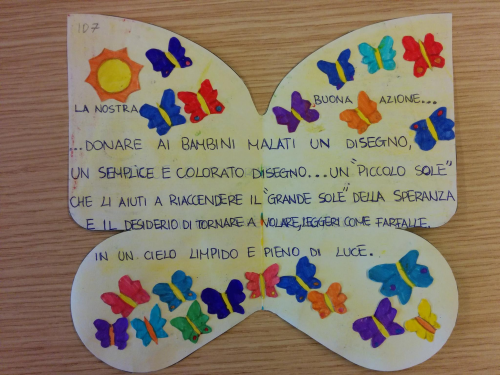 1D7
LA NOSTRA BUONA AZIONE...
...DONARE AI BAMBINI MALATI UN DISEGNO,
UN SEMPLICE E COLORATO DISEGNO...UN "PICCOLO SOLE"
CHE LI AIUTI A RIACCENDERE IL "GRANDE SOLE" DELLA SPERANZA
E IL DESIDERIO DI TORNARE A VOLARE, LEGGERI COME FARFALLE,
IN UN CIELO LIMPIDO E PIENO DI LUCE.